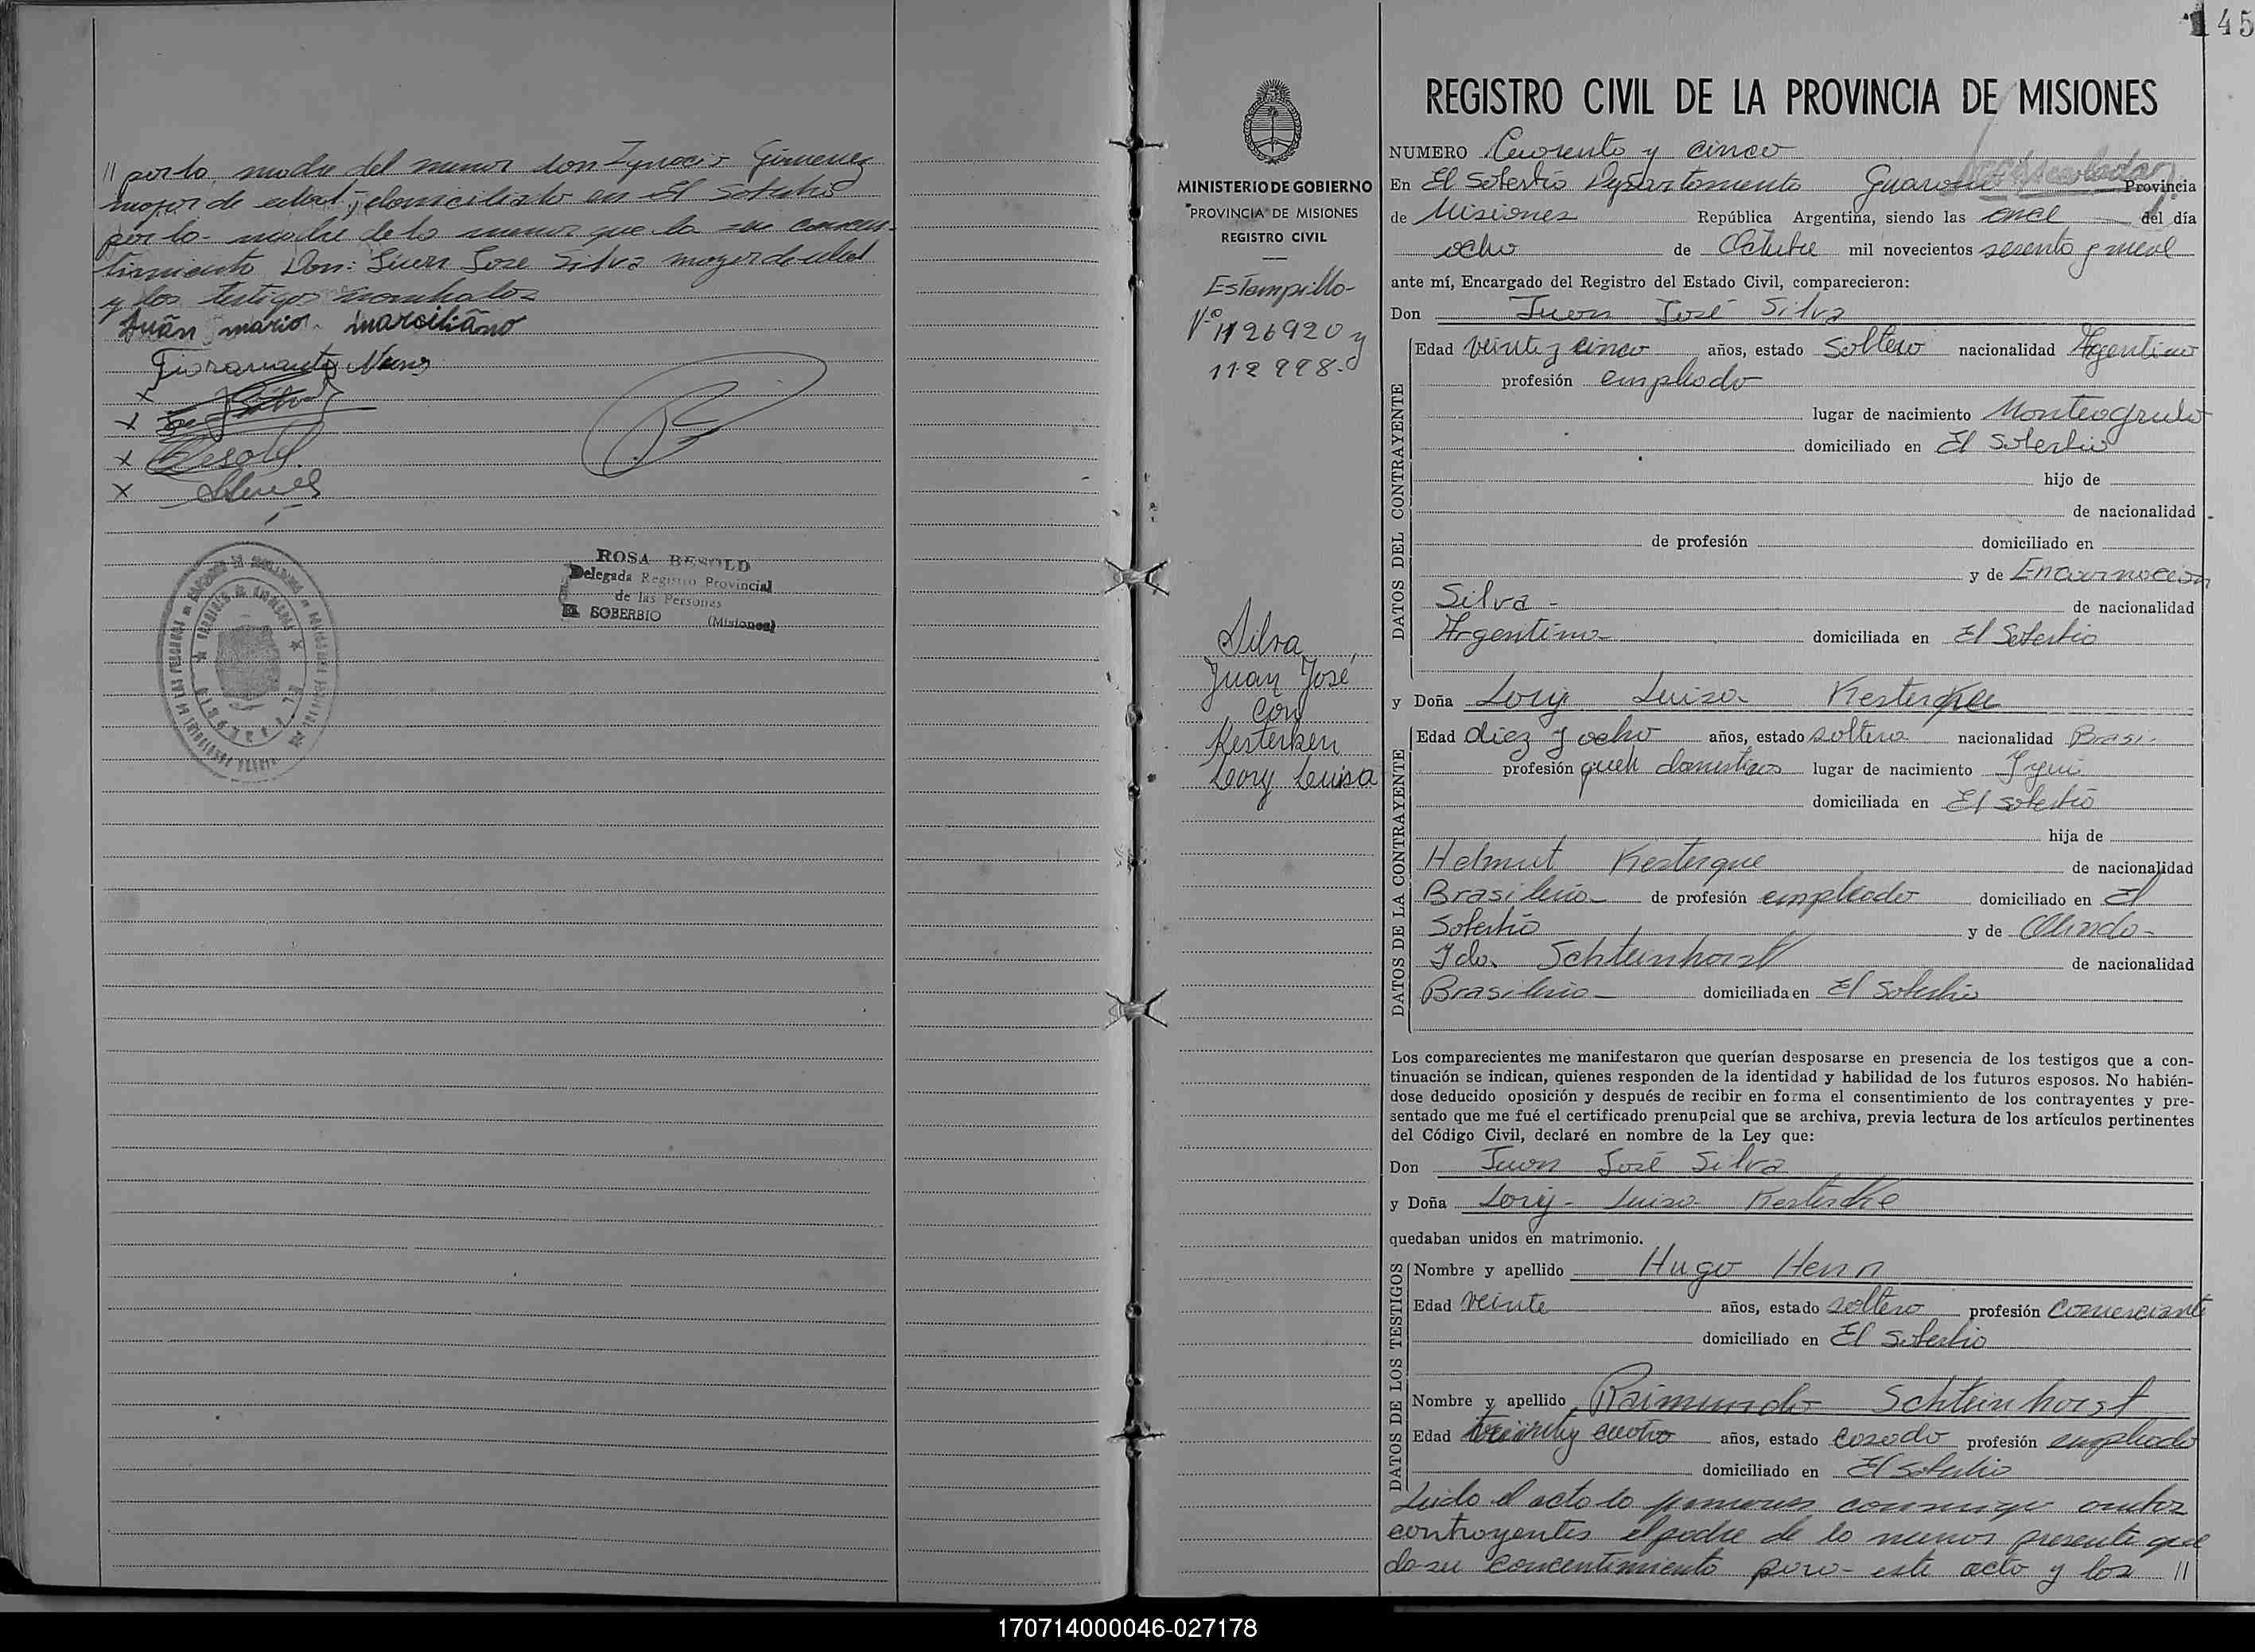 // por la madre del menor don Ignacio Gimenez
mayor de edad y domiciliado en El Soberbio
por la madre de la menor que la su consen-
timiento Don: Juan Jose Silva mayor de edad
y los testigos nombrados
Juãn mario marciliãno
Nuns
X
X
X Besold
X
ROSA BESOLD
Delegada Registro Provincial
de las Personas
EL SOBERBIO (Misiones)
MINISTERIO DE GOBIERNO
PROVINCIA DE MISIONES
REGISTRO CIVIL
Estampilla
Nº 1126920 y
112998.
Silva
Juan José
con
Kesterken
Leory Luisa
145
REGISTRO CIVIL DE LA PROVINCIA DE MISIONES
NUMERO Cuarenta y cinco
En El Soberbio Departamento Guarani Provincia
de Misiones República Argentina, siendo las once del día
ocho de Octubre mil novecientos sesenta y nueve
ante mí, Encargado del Registro del Estado Civil, comparecieron:
Don Juan José Silva
DATOS DEL CONTRAYENTE
Edad veinte y cinco años, estado Soltero nacionalidad Argentino
profesión empleado
lugar de nacimiento Monteagudo
domiciliado en El Soberbio
hijo de
de nacionalidad
de profesión domiciliado en
y de Encarnacion
Silva - de nacionalidad
Argentina domiciliada en El Soberbio
y Doña Lory Luisa Kesterque
DATOS DE LA CONTRAYENTE
Edad diez y ocho años, estado soltera nacionalidad Brasi-
profesión queh domesticos lugar de nacimiento Iyui
domiciliada en El Soberbio
hija de
Helmut Kesterque de nacionalidad
Brasileño de profesión empleado domiciliado en El
Soberbio y de Olinda-
Ida Schteinhorst de nacionalidad
Brasileña domiciliada en El Soberbio
Los comparecientes me manifestaron que querían desposarse en presencia de los testigos que a con-
tinuación se indican, quienes responden de la identidad y habilidad de los futuros esposos. No habién-
dose deducido oposición y después de recibir en forma el consentimiento de los contrayentes y pre-
sentado que me fué el certificado prenupcial que se archiva, previa lectura de los artículos pertinentes
del Código Civil, declaré en nombre de la Ley que:
Don Juan José Silva
y Doña Lory- Luisa Kesterke
quedaban unidos en matrimonio.
DATOS DE LOS TESTIGOS
Nombre y apellido Hugo Henn
Edad veinte años, estado soltero profesión comerciante
domiciliado en El Soberbio
Nombre y apellido Raimundo Schteinhorst
Edad treinta y cuatro años, estado casado profesión empleado
domiciliado en El Soberbio
Leido el acto lo firmaron conmigo ambos
contrayentes el padre de la menor presente que
da su concentimiento para este acto y los //
170714000046-027178